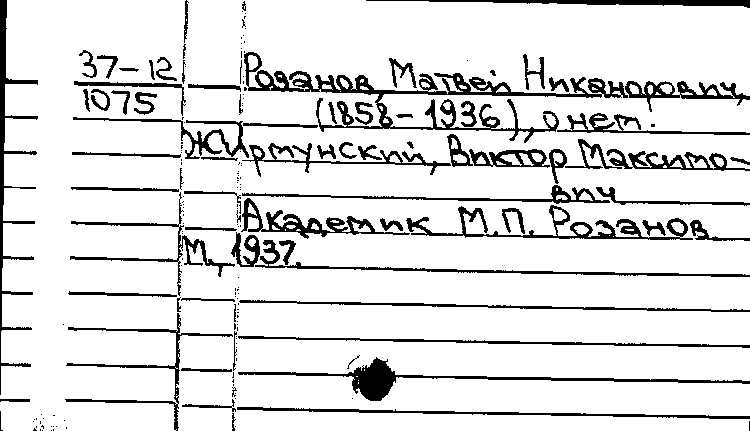 37-12
1075
Розанов, Матвей Никанорович,
(1858-1936), о нем.
Жирмунский, Виктор Максимо-
вич
Академик М.П. Розанов
М., 1937.